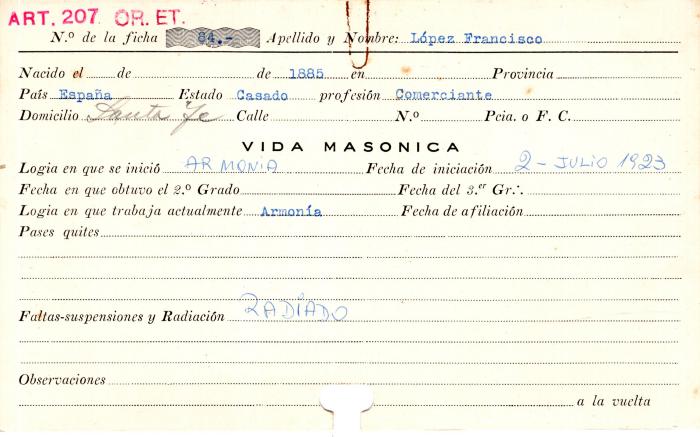 ART. 207 OR. ET.
N.º de la ficha 84.- Apellido y Nombre: López Francisco
Nacido el de de 1885 en Provincia
País España Estado Casado profesión Comerciante
Domicilio Santa Fe Calle N.º Pcia. o F. C.
VIDA MASONICA
Logia en que se inició ARMONIA Fecha de iniciación 2 - JULIO 1923
Fecha en que obtuvo el 2.º Grado Fecha del 3.er Gr∴
Logia en que trabaja actualmente Armonía Fecha de afiliación
Pases quites
Faltas-suspensiones y Radiación RADIADO
Observaciones
a la vuelta